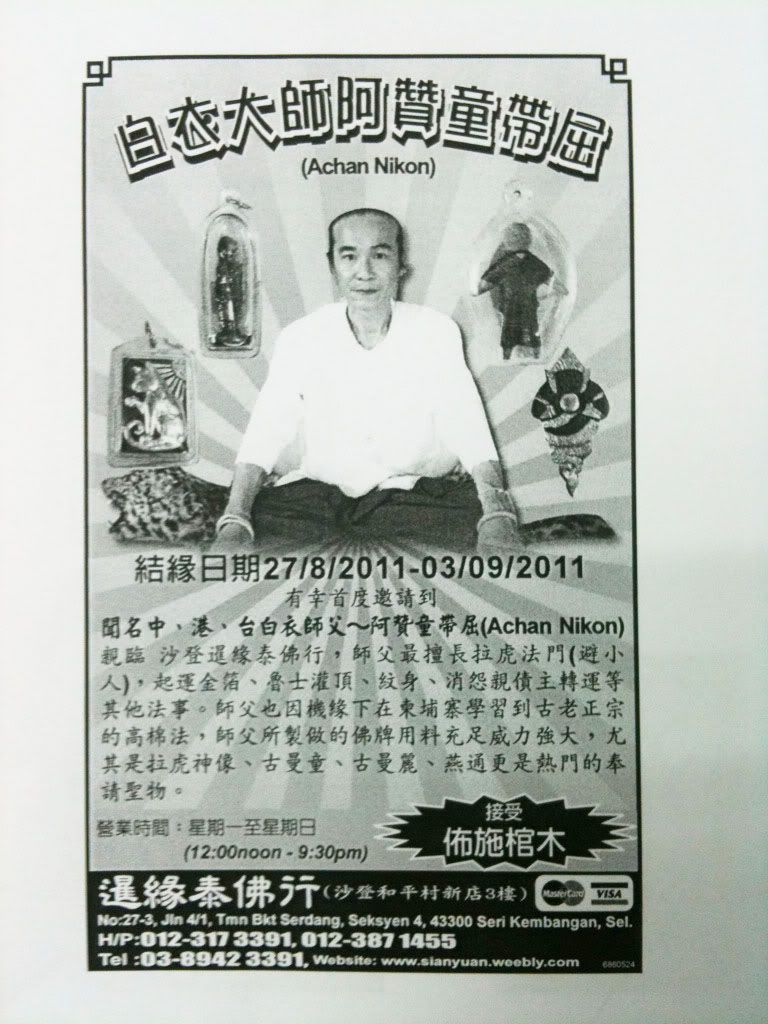 白衣大師阿贊童帶屈
(Achan Nikon)
結緣日期27/8/2011-03/09/2011
有幸首度邀請到
聞名中、港、台白衣師父～阿贊童帶屈(Achan Nikon)
親臨 沙登暹緣泰佛行，師父最擅長拉虎法門(避小
人)，起運金箔、魯士灌頂、紋身、消怨親債主轉運等
其他法事。師父也因機緣下在柬埔寨學習到古老正宗
的高棉法，師父所製做的佛牌用料充足威力強大，尤
其是拉虎神像、古曼童、古曼麗、燕通更是熱門的奉
請聖物。
營業時間：星期一至星期日
(12:00noon - 9:30pm)
接受
佈施棺木
暹緣泰佛行(沙登和平村新店3樓) MasterCard VISA
No:27-3, Jln 4/1, Tmn Bkt Serdang, Seksyen 4, 43300 Seri Kembangan, Sel.
H/P:012-317 3391, 012-387 1455
Tel :03-8942 3391, Website: www.sianyuan.weebly.com 6860524